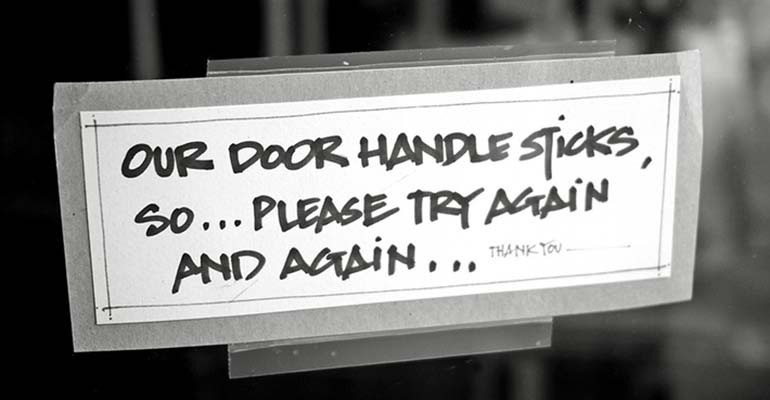 OUR DOOR HANDLE STiCKS,
SO...PLEASE TRY AGAiN
AND AGAiN... THANK YOU